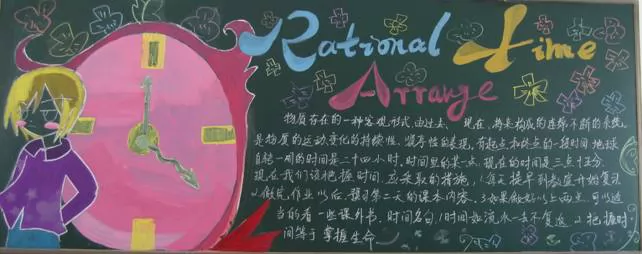 Rational Time
Arrange
物质存在的一种客观形式，由过去、现在、将来构成的连绵不断的系统，
是物质的运动变化的持续性、顺序性的表现，有起点和终点的一段时间，地球
自转一周的时间是二十四小时，时间里的某一点，现在的时间是三点十五分，
现在我们该把握时间，应采取的措施，1每天提早到教室开始复习
2做完作业以后，预习第二天的课本内容，3如果做好以上两点，可以适
当的看一些课外书，时间名句，1时间如流水一去不复返，2把握时
间等于掌握生命